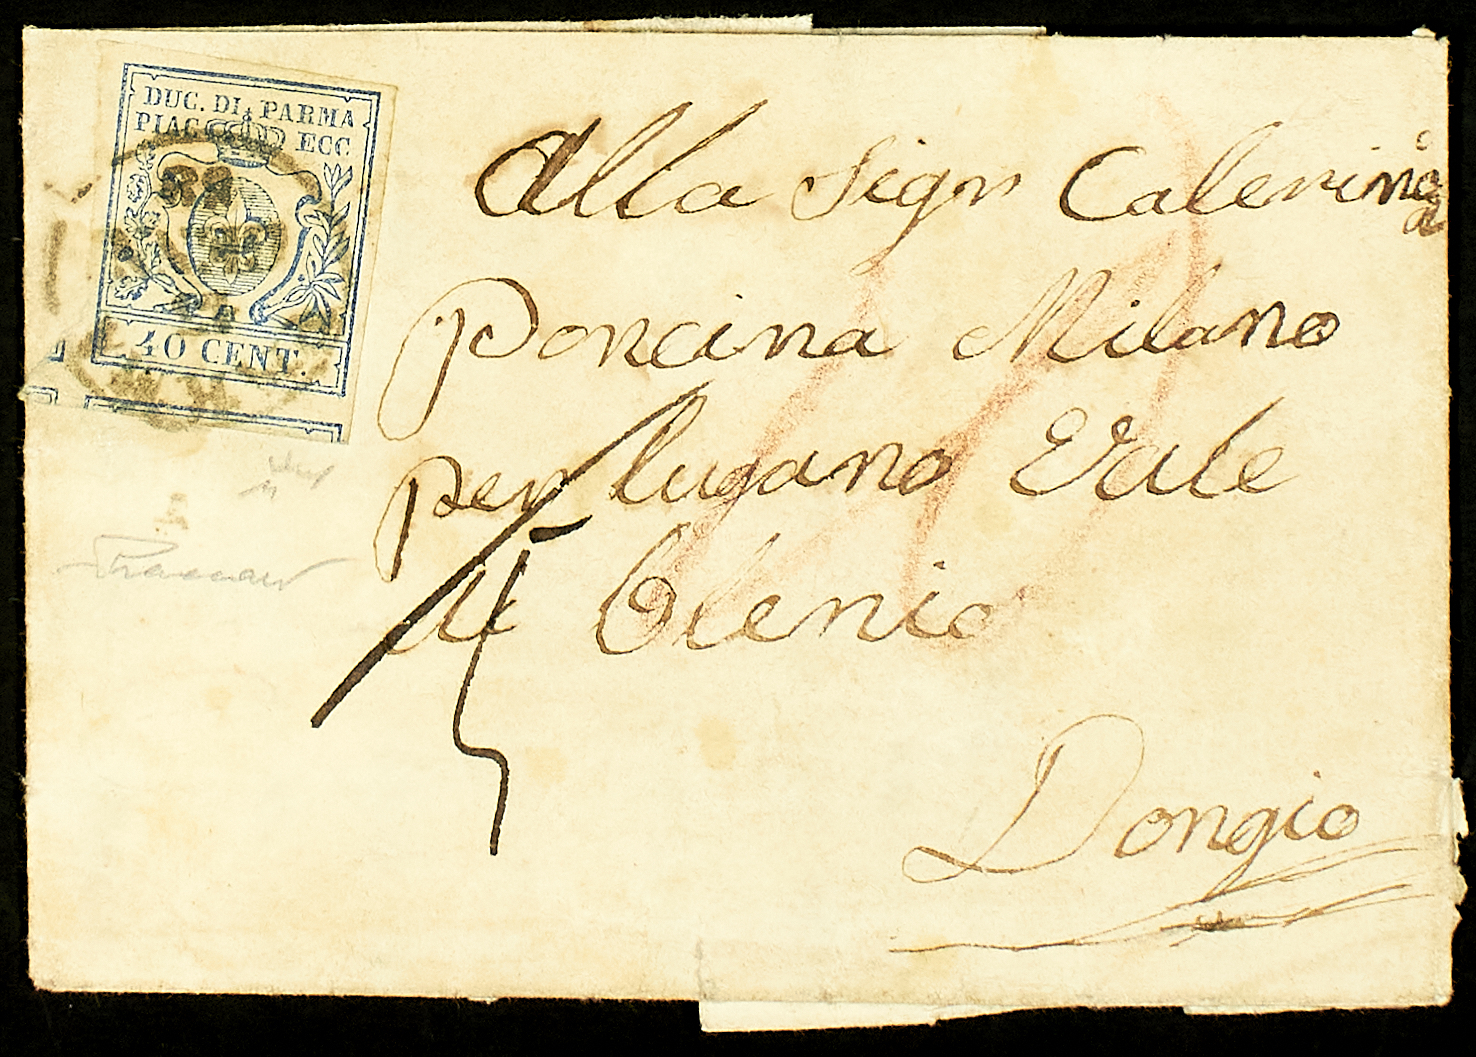 DUC. DI PARMA
PIAC ECC
40 CENT.
Alla Sign Caterina
Poncina Milano
per lugano Vale
di Blenio
Dongio